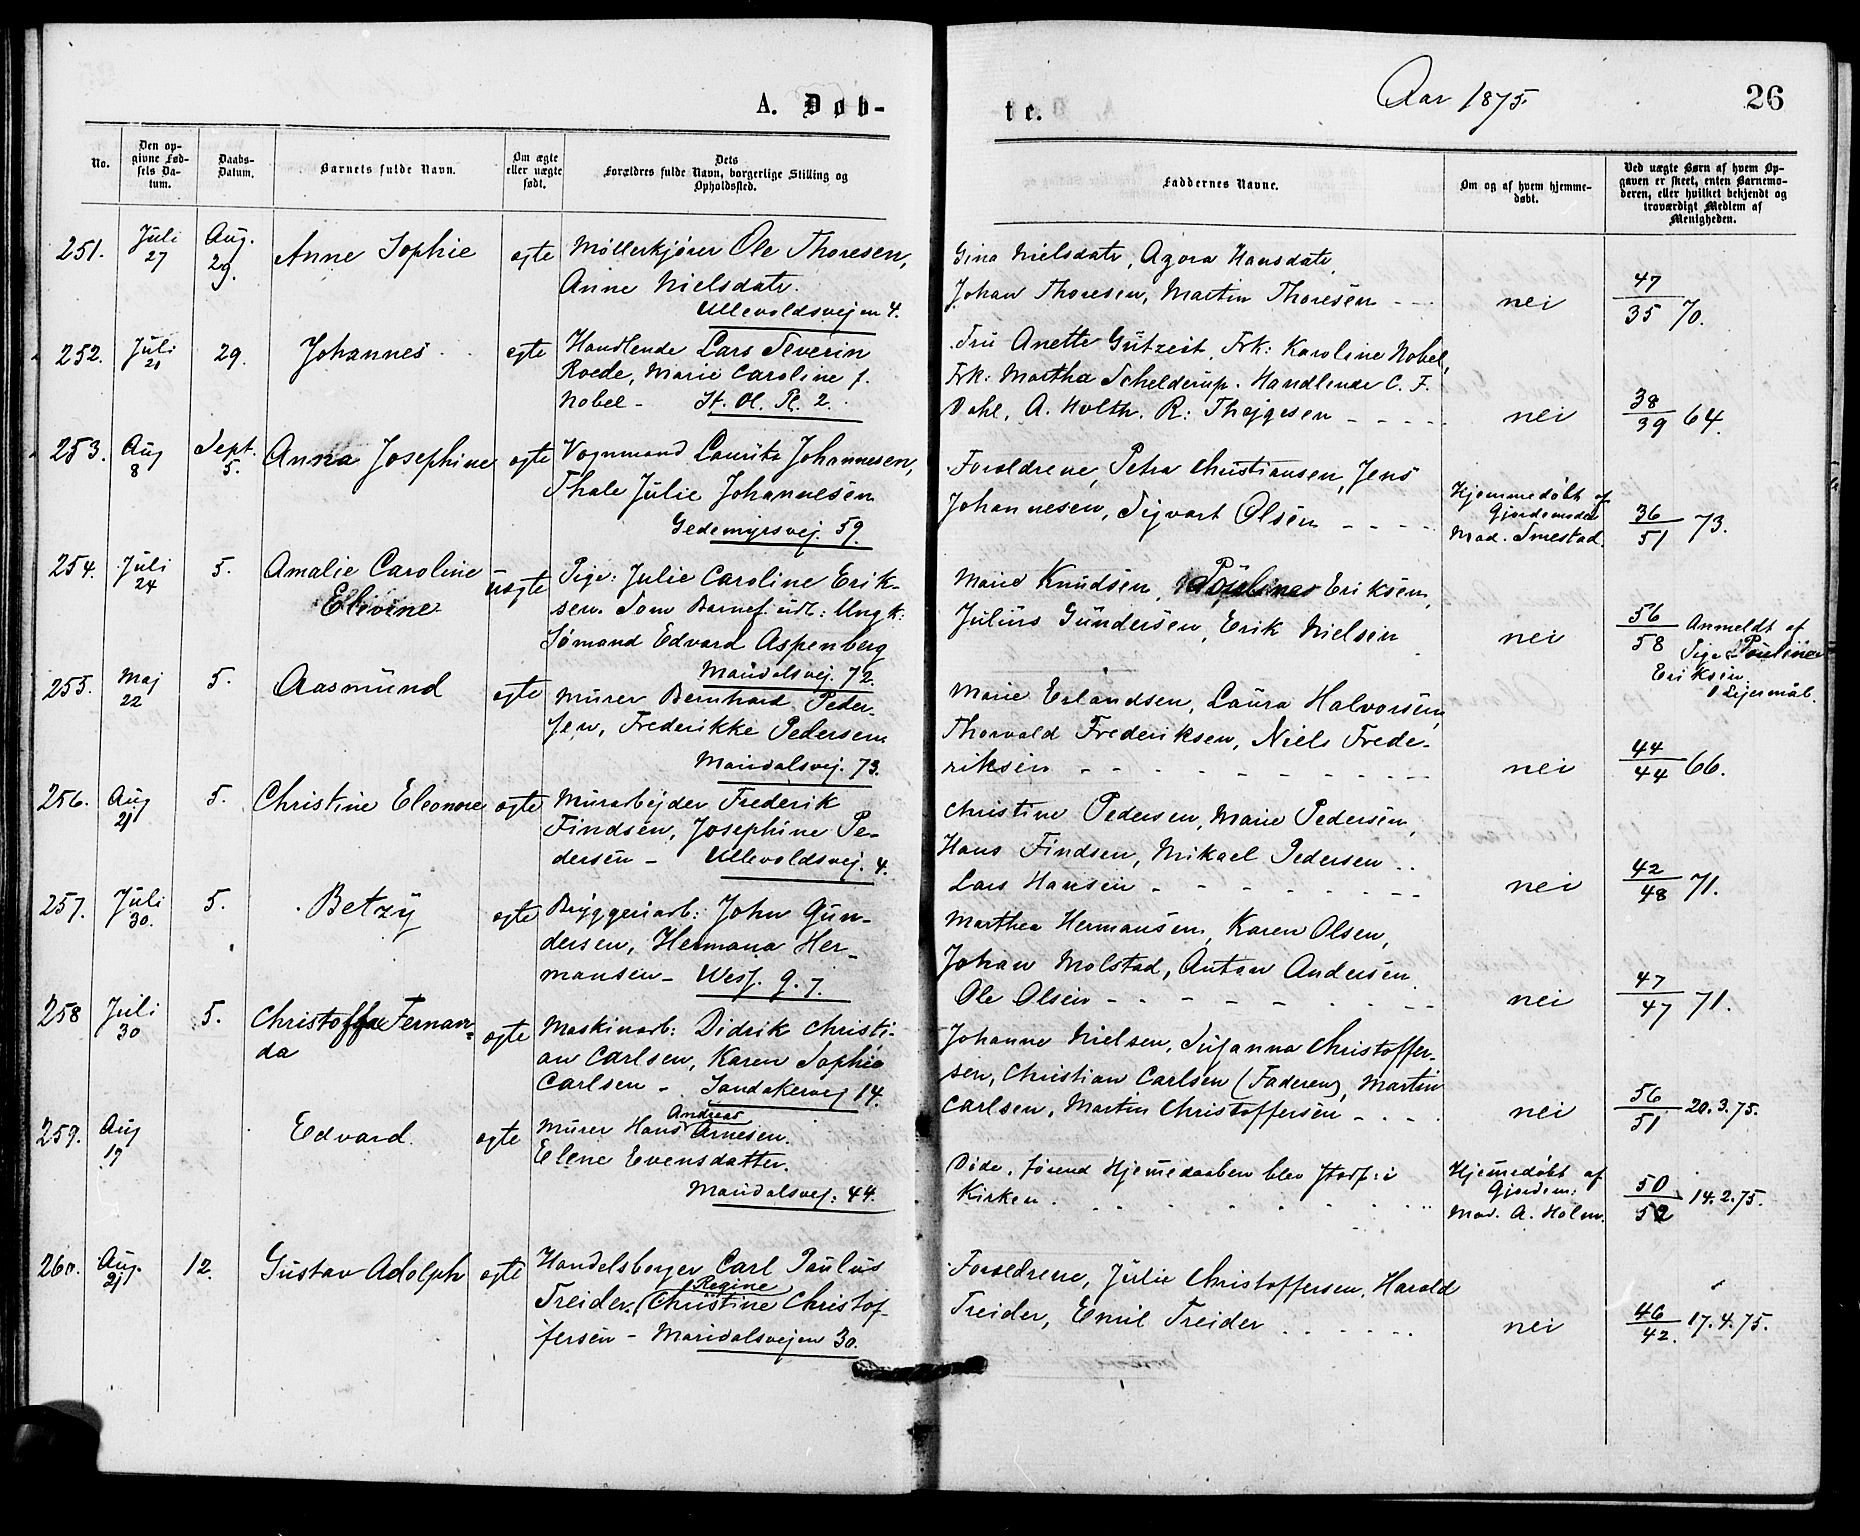 A. Døb-
te.
Aar 1875.
26
No.
Den op-
givne Fød-
sels Da-
tum.
Daabs-
Datum.
Barnets fulde Navn.
Om ægte
eller uægte
født.
Dets
Forældres fulde Navn, borgerlige Stilling og
Opholdssted.
Faddernes Navne.
Om og af hvem hjemme-
døbt.
Ved uægte Børn af hvem Op-
gaven er skeet, enten Barnemo-
deren, eller hvilket bekjendt og
troværdigt Medlem af
Menigheden.
251.
Juli
27
Aug.
29.
Anne Sophie
egte
Møllerkjører Ole Thoresen,
Anne Nielsdatr.
Ullevoldsvejen 4.
Gina Nielsdatr, Agora Hansdatr,
Johan Thoresen, Martin Thoresen
nei
47
35 70.
252.
Juli
21
29.
Johannes
egte
Handlende Lars Severin
Roede, Marie Caroline f.
Nobel - St. Ol. Pl. 2.
Fru Anette Gutzeit, Frk: Karoline Nobel,
Frk: Martha Schelderup. Handlende C. F.
Dahl, A. Holth. R: Thejgesen
nei
38
39 64.
253.
Aug
8
Sept.
5.
Anna Josephine
egte
Vognmand Lauritz Johannesen,
Thale Julie Johannesen
Gedemyrsvej. 59.
Forældrene, Petra Christiansen, Jens
Johannesen, Sigvart Olsen
Hjemmedøbt af
Gjordemoder
Mad. Smestad.
36
51 73.
254.
Juli
24
5.
Amalie Caroline
Elevine
uegte
Pige: Julie Caroline Erik-
sen. Som Barnef. udl: Ungk:
Sømand Edvard Aspenberg
Maridalsvej. 72.
Marie Knudsen, Pouline Eriksen,
Julius Gundersen, Erik Nielsen
nei
56
58
Anmeldt af
Pige Pouline
Eriksen.
1 Lejermål.
255.
Maj
22
5.
Aasmund
egte
Murer Bernhard Peder-
sen, Frederikke Pedersen
Maridalsvej. 73.
Marie Erlandsen, Laura Halvorsen,
Thorvald Frederiksen, Niels Frede-
riksen
nei
44
44 66.
256.
Aug
21
5.
Christine Eleonore
egte
Murarbejder Frederik
Findsen, Josephine Pe-
dersen - Ullevoldsvej. 4.
Christine Pedersen, Marie Pedersen,
Hans Findsen, Mikael Pedersen
Lars Hansen
nei
42
48 71.
257.
Juli
30.
5.
Betzy
egte
Bryggeriarb: John Gun-
dersen, Hermana Her-
mansen - Wesf. g. 7.
Marthea Hermansen, Karen Olsen,
Johan Molstad, Antan Andersen
Ole Olsen
nei
47
47 71.
258
Juli
30
5.
Christoffa Fernan-
da
egte
Maskinarb: Didrik Christi-
an Carlsen, Karen Sophie
Carlsen - Sandakervej 14.
Johanne Nielsen, Susanna Christoffer-
sen, Christian Carlsen (Faderen), Martin
Carlsen, Martin Christoffersen
nei
56
51 20.3.75.
259.
Aug
19
Edvard.
egte
Andreas
Murer Hans Arnesen.
Elene Evensdatter.
Maridalsvej: 44.
Døde, førend Hjemedaaben blev stadf: i
Kirken.
Hjemedøbt af
Gjordem:
Mad. A. Holm.
50
52 14.2.75.
260.
Aug.
21
12.
Gustav Adolph
egte
Handelsborger Carl Paulus
Regine
Treider, Christine Christof-
fersen - Maridalsvejen 30.
Forældrene, Julie Christoffersen, Harald
Treider, Emil Treider
nei
46
42. 17.4.75.